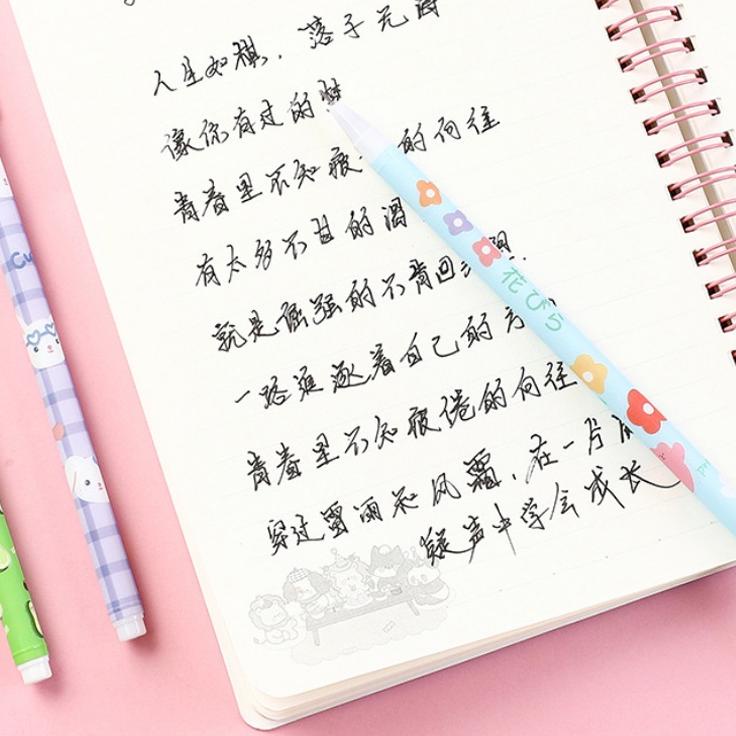 人生如棋，落子无
像你有过的梦
青春里不知疲 的向往
有太多不甘的泪
就是倔强的不肯回
一路追逐着自己的方
青春里不知疲倦的向往
穿过雷雨和风霜，在一片
疑声中学会成长
花びら
Cu